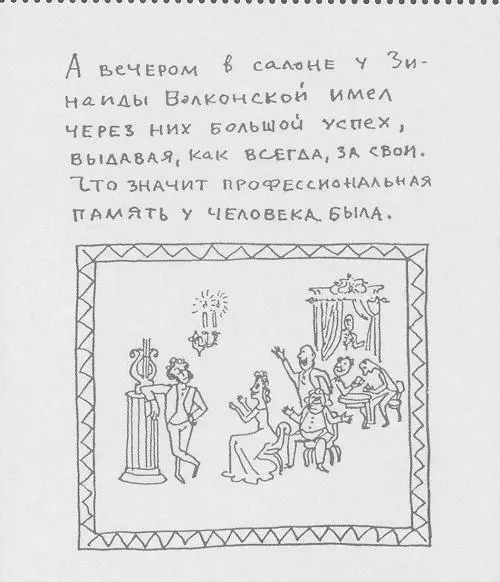 А вечером в салоне у Зи-
наиды Волконской имел
через них большой успех,
выдавая, как всегда, за свои.
Что значит профессиональная
память у человека была.